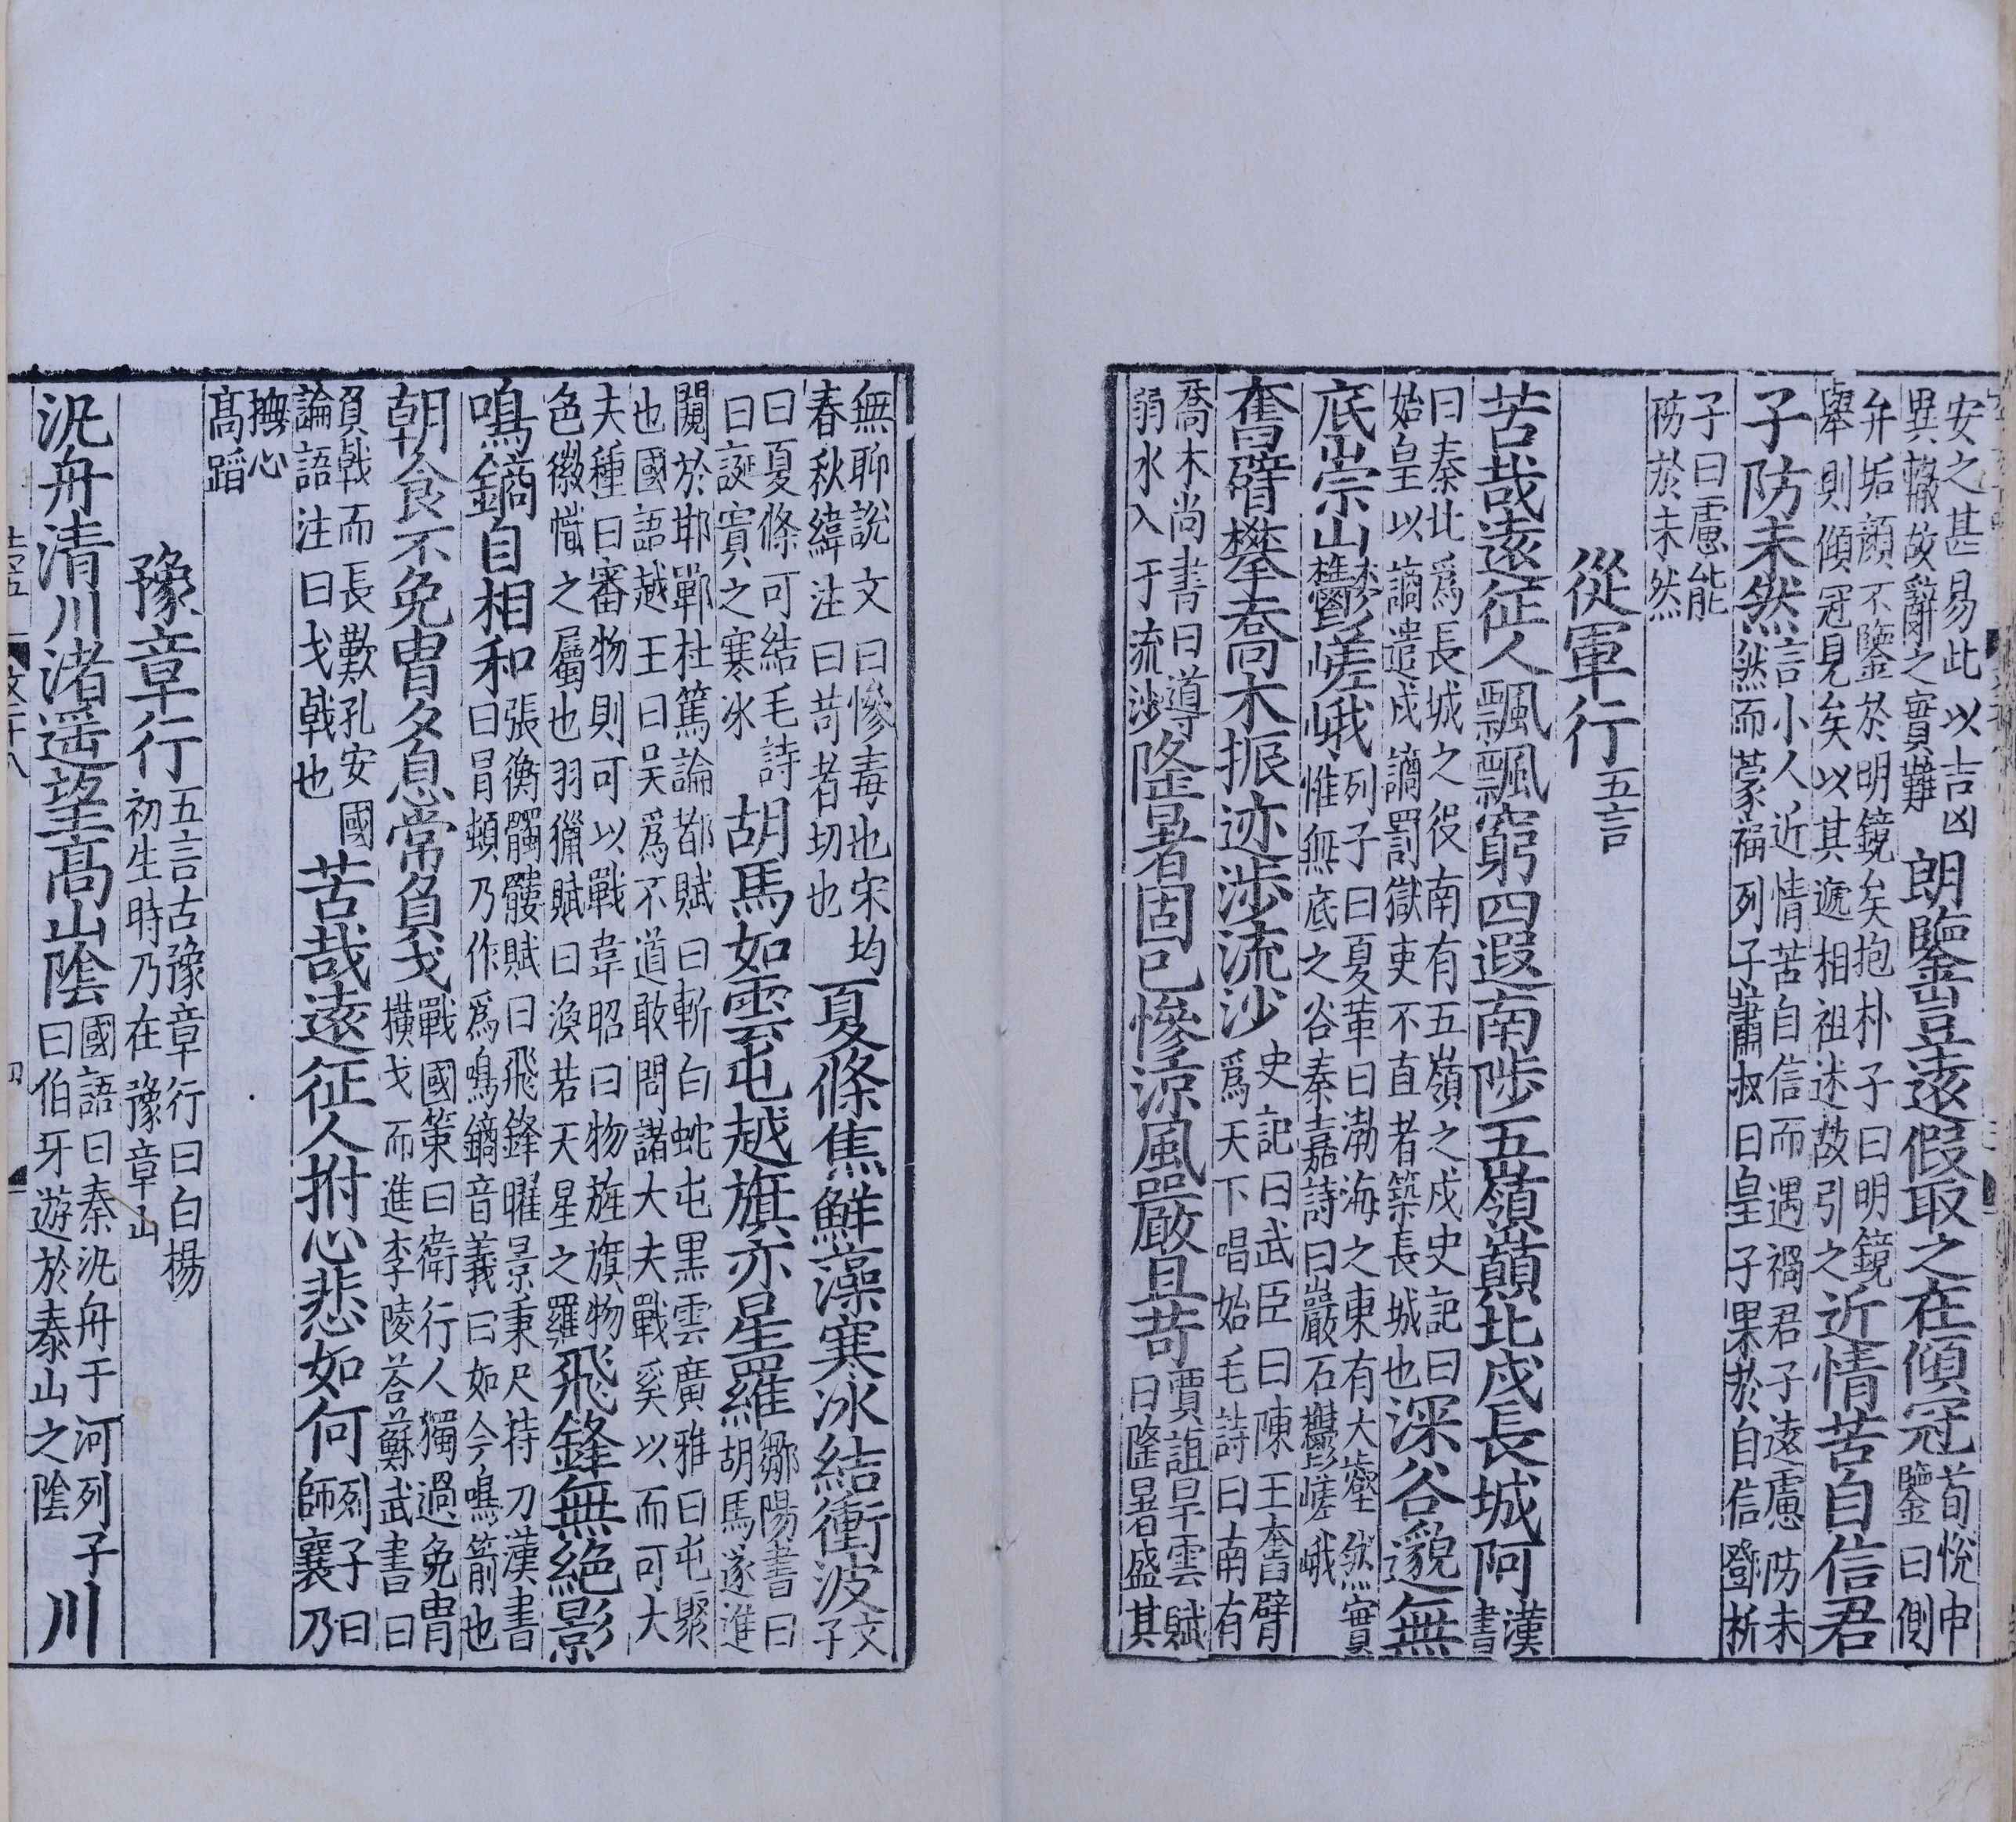 安之甚易此以吉凶
異轍故辭之實難
朗鑒豈遠假取之在傾冠
荀悅申
鑒曰側
弁垢顏不鑒於明鏡矣抱朴子曰明鏡
舉則傾冠見矣以其遞相祖述故引之
近情苦自信君
子防未然
言小人近情苦自信而遇禍君子遠慮防未
然而蒙福列子蕭叔曰皇子果於自信鄧析
子曰慮能
防於未然
從軍行
五言
苦哉遠征人飄飄窮四遐南陟五嶺巔北戍長城阿
漢
書
曰秦北爲長城之役南有五嶺之戍史記曰
始皇以謫遣戍謫罰獄吏不直者築長城也
深谷邈無
底崇山鬱嵯峨
列子曰夏革曰渤海之東有大壑然實
惟無底之谷秦嘉詩曰巖石鬱嵯峨
奮臂攀喬木振迹涉流沙
史記曰武臣曰陳王奮臂
爲天下唱始毛詩曰南有
喬木尚書曰導
弱水入于流沙
隆暑固已慘涼風嚴且苛
賈誼旱雲賦
曰隆暑盛其
無聊說文曰慘毒也宋均
春秋緯注曰苛者切也
夏條焦鮮藻寒冰結衝波
文
子
曰夏條可結毛詩
曰誕寘之寒冰
胡馬如雲屯越旗亦星羅
鄒陽書曰
胡馬遂進
闚於邯鄲杜篤論都賦曰斬白蛇屯黑雲廣雅曰屯聚
也國語越王曰吳爲不道敢問諸大夫戰奚以而可大
夫種曰審物則可以戰韋昭曰物旌旗物
色徽幟之屬也羽獵賦曰渙若天星之羅
飛鋒無絕影
鳴鏑自相和
張衡髑髏賦曰飛鋒曜景秉尺持刀漢書
曰冒頓乃作爲鳴鏑音義曰如今鳴箭也
朝食不免冑夕息常負戈
戰國策曰衛行人獨過免冑
橫戈而進李陵荅蘇武書曰
負戟而長歎孔安國
論語注曰戈戟也
苦哉遠征人拊心悲如何
列子曰
師襄乃
撫心
高蹈
豫章行
五言古豫章行曰白楊
初生時乃在豫章山
汎舟清川渚遥望高山陰
國語曰秦汎舟于河列子
曰伯牙遊於泰山之陰
川